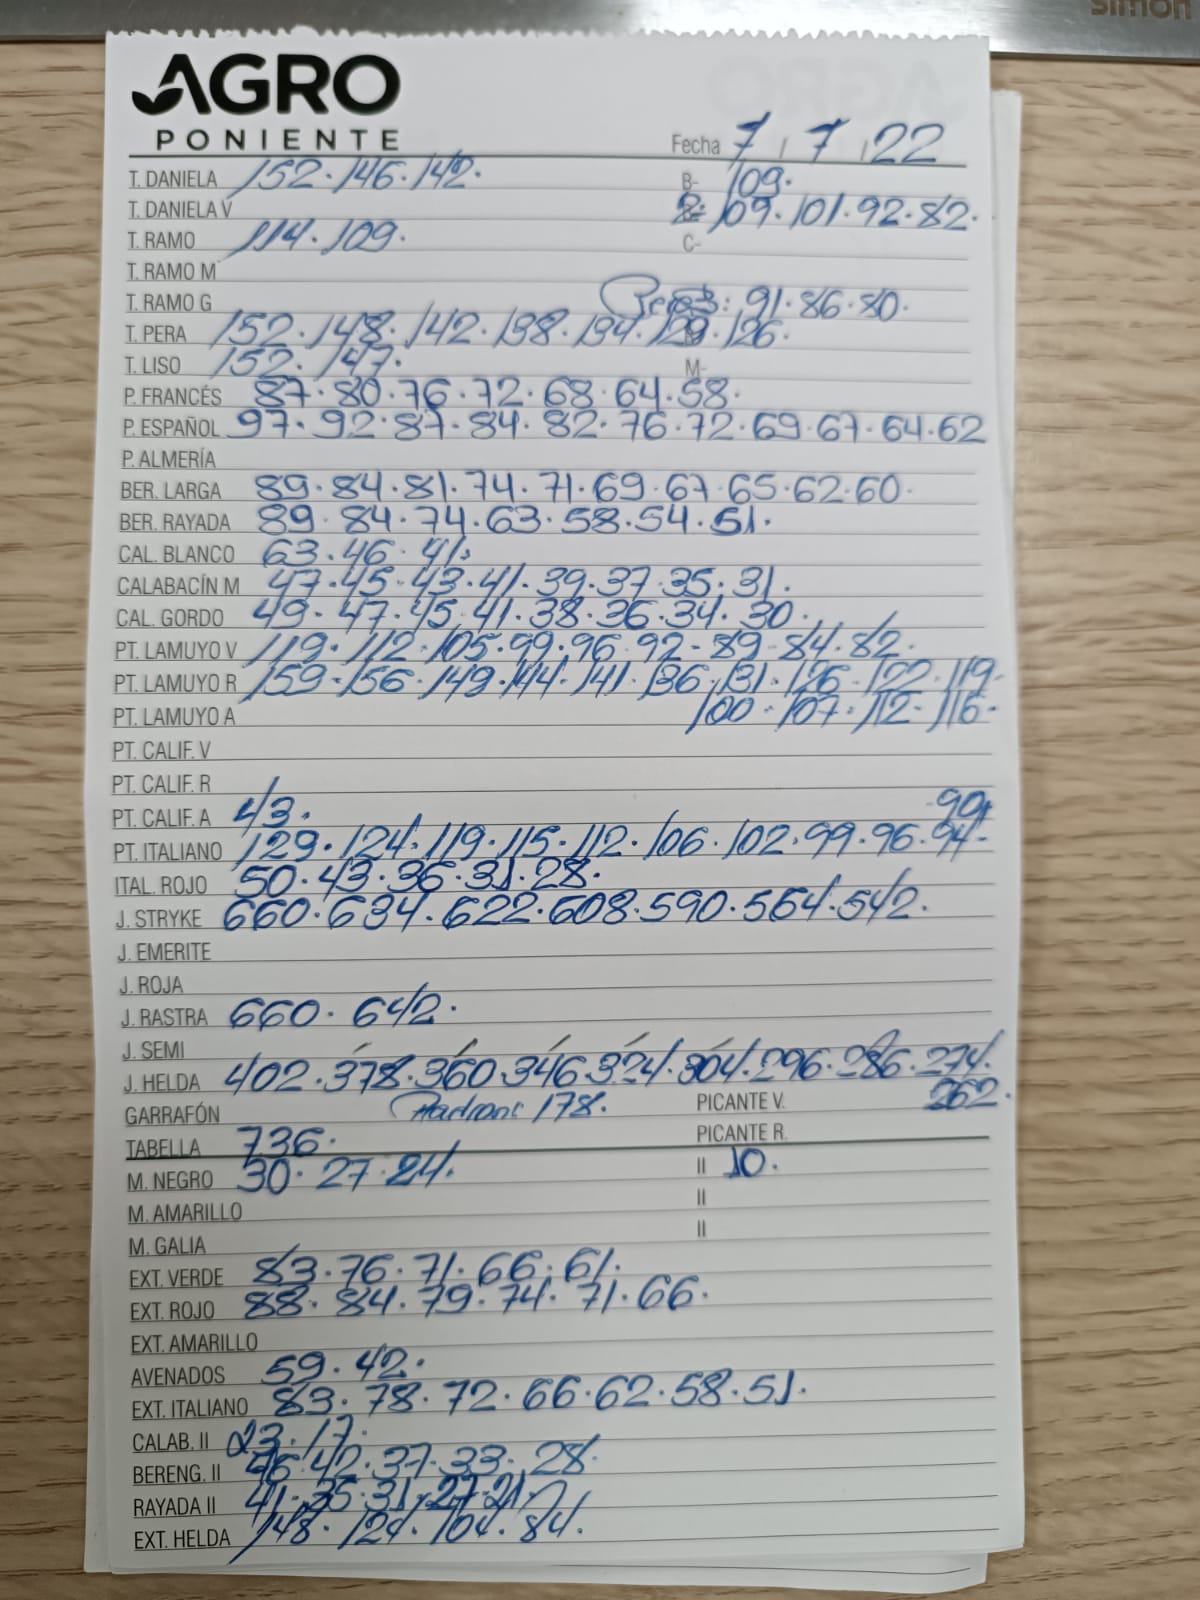 simon
AGRO
PONIENTE
Fecha 7 / 7 / 22
T. DANIELA 152. 146. 142. B- 109.
T. DANIELA V 2- 109. 101. 92. 82.
T. RAMO 114. 109. C-
T. RAMO M
T. RAMO G 91. 86. 80.
T. PERA 152. 148. 142. 138. 134. 129. 126.
T. LISO 152. 147. M-
P. FRANCÉS 87. 80. 76. 72. 68. 64. 58.
P. ESPAÑOL 97. 92. 87. 84. 82. 76. 72. 69. 67. 64. 62
P. ALMERÍA
BER. LARGA 89. 84. 81. 74. 71. 69. 67. 65. 62. 60.
BER. RAYADA 89. 84. 74. 63. 58. 54. 51.
CAL. BLANCO 63. 46. 41.
CALABACÍN M 47. 45. 43. 41. 39. 37. 35. 31.
CAL. GORDO 49. 47. 45. 41. 38. 36. 34. 30.
PT. LAMUYO V 119. 112. 105. 99. 96. 92. 89. 84. 82.
PT. LAMUYO R 159. 156. 149. 144. 141. 136. 131. 126. 122. 119.
PT. LAMUYO A 100. 107. 112. 116.
PT. CALIF. V
PT. CALIF. R
PT. CALIF. A 43. 90.
PT. ITALIANO 129. 124. 119. 115. 112. 106. 102. 99. 96. 94.
ITAL. ROJO 50. 43. 36. 31. 28.
J. STRYKE 660. 634. 622. 608. 590. 564. 542.
J. EMERITE
J. ROJA
J. RASTRA 660. 642.
J. SEMI
J. HELDA 402. 378. 360. 346. 324. 304. 296. 286. 274.
GARRAFÓN Padroni 178. PICANTE V. 262.
TABELLA 736. PICANTE R.
M. NEGRO 30. 27. 24. II 10.
M. AMARILLO II
M. GALIA II
EXT. VERDE 83. 76. 71. 66. 61.
EXT. ROJO 88. 84. 79. 74. 71. 66.
EXT. AMARILLO
AVENADOS 59. 42.
EXT. ITALIANO 83. 78. 72. 66. 62. 58. 51.
CALAB. II 23. 17.
BERENG. II 46. 42. 37. 33. 28.
RAYADA II 41. 35. 31. 27. 21.
EXT. HELDA 148. 124. 104. 84.